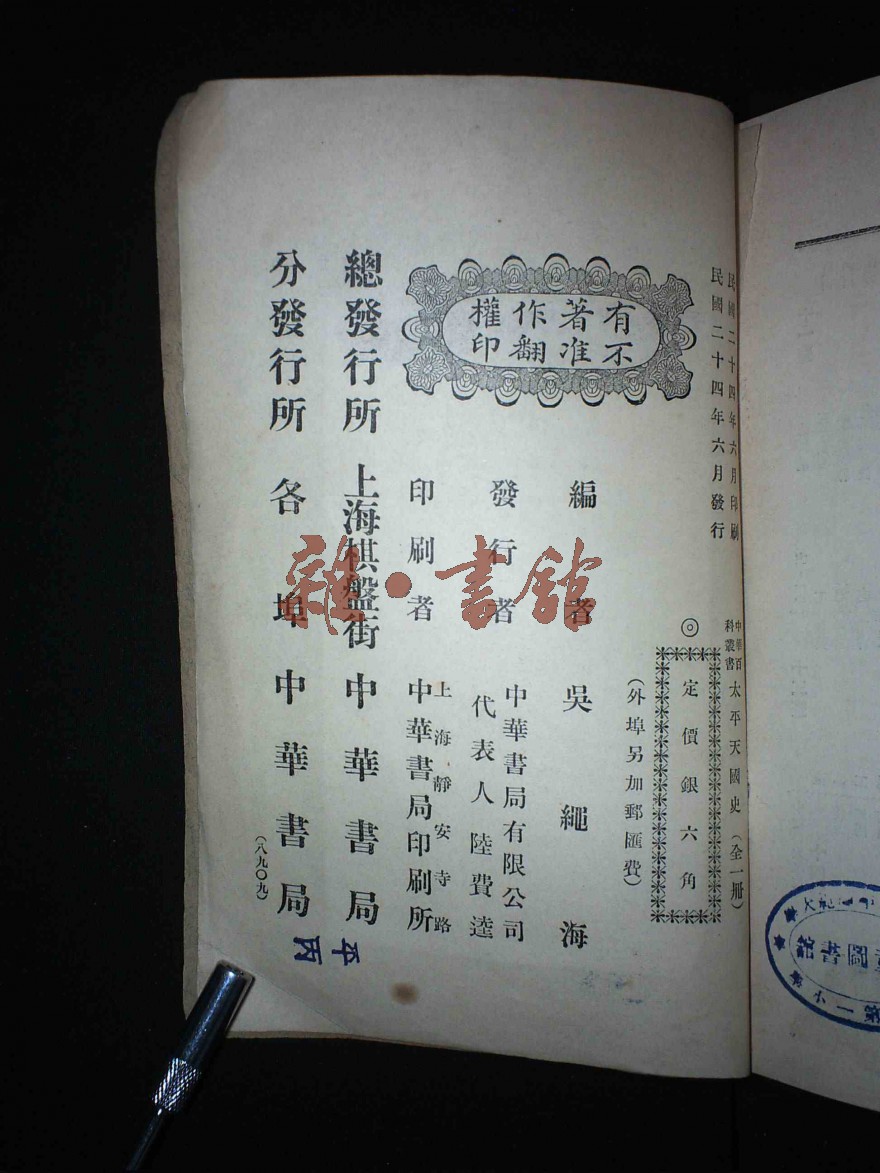 民國二十四年六月印刷
民國二十四年六月發行
中華百科叢書 太平天國史（全一冊）
◎定價銀六角
（外埠另加郵匯費）
有著作權
不准翻印
編者 吳繩海
發行者 中華書局有限公司
代表人 陸費逵
印刷者 上海靜安寺路
中華書局印刷所
總發行所 上海棋盤街 中華書局
分發行所 各埠 中華書局
（八九〇九）
平
丙
雜·書館
圖書館
第一小學